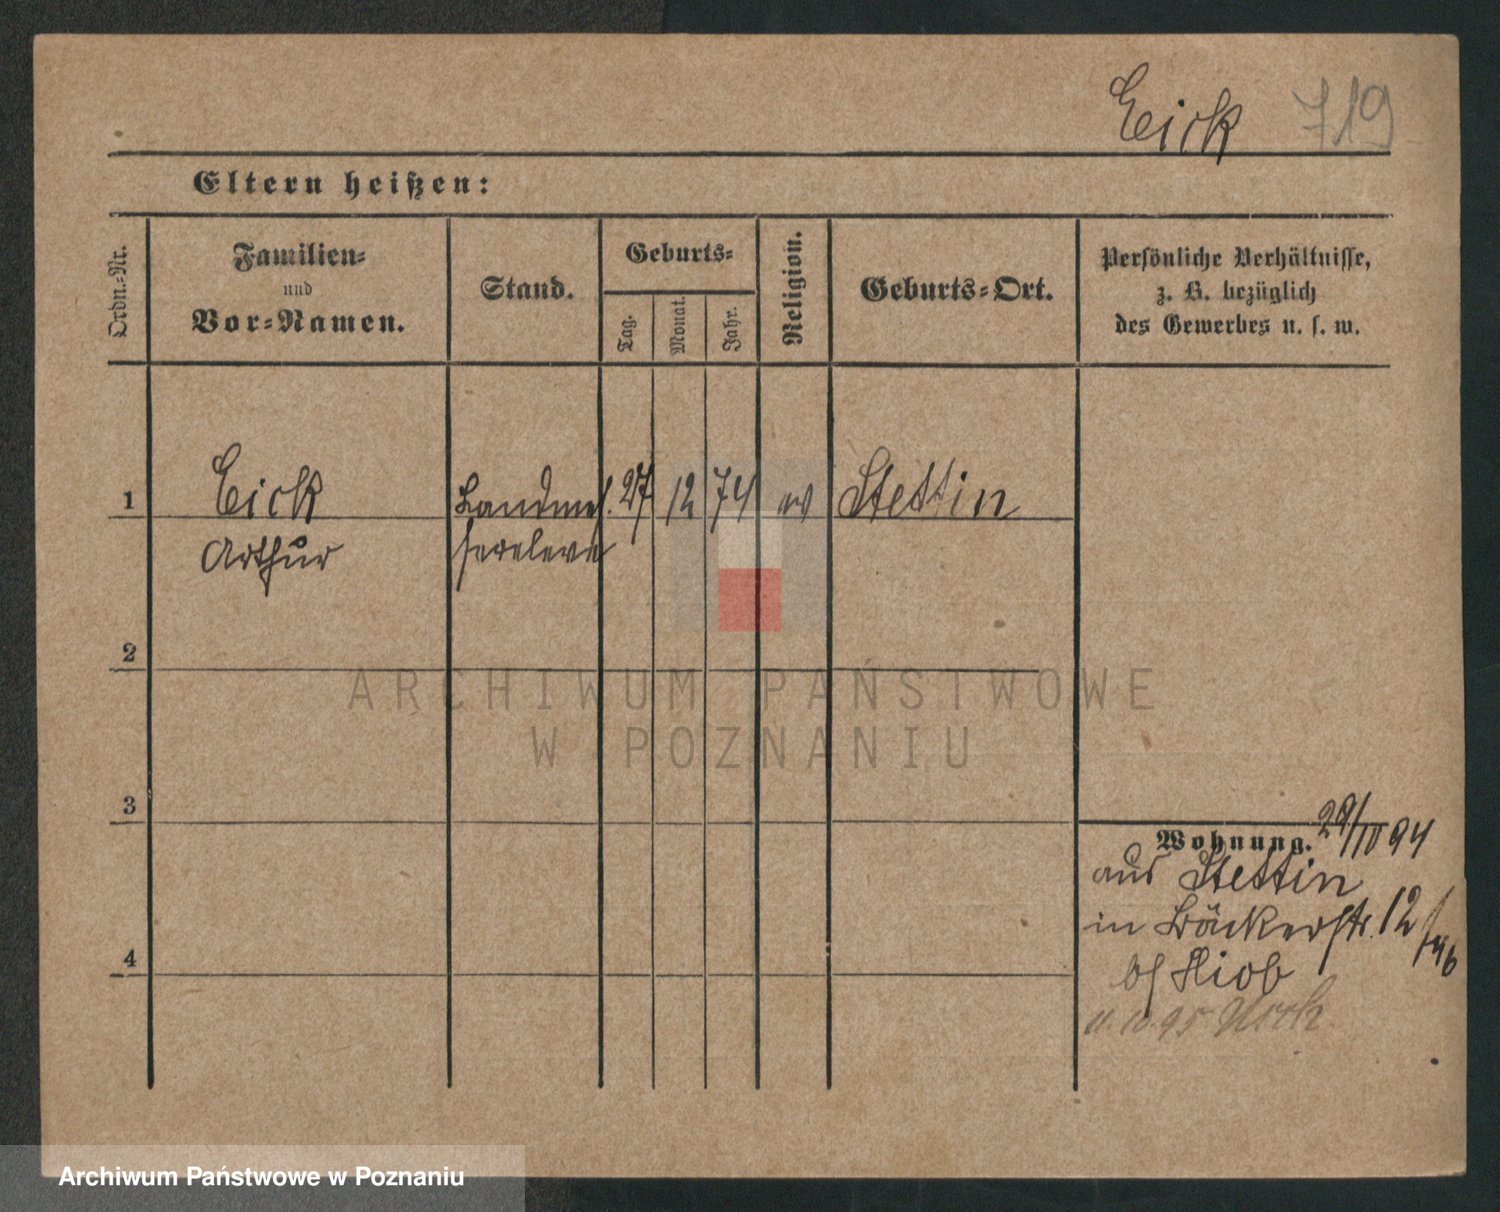 Eick 719
Eltern heißen:
Ordn.-Nr.
Familien-
und
Vor-Namen.
Stand.
Geburts-
Tag.
Monat.
Jahr.
Religion.
Geburts-Ort.
Persönliche Verhältnisse,
z. B. bezüglich
des Gewerbes u. s. w.
1 Eick Landmes. 27 12 74 ev Stettin
Arthur sereleve
2
ARCHIWUM PAŃSTWOWE
W POZNANIU
3
Wohnung. 29/10 94
aus Stettin
in Bäckerstr. 12
4
bei Hiob
11. 10. 95
Archiwum Państwowe w Poznaniu